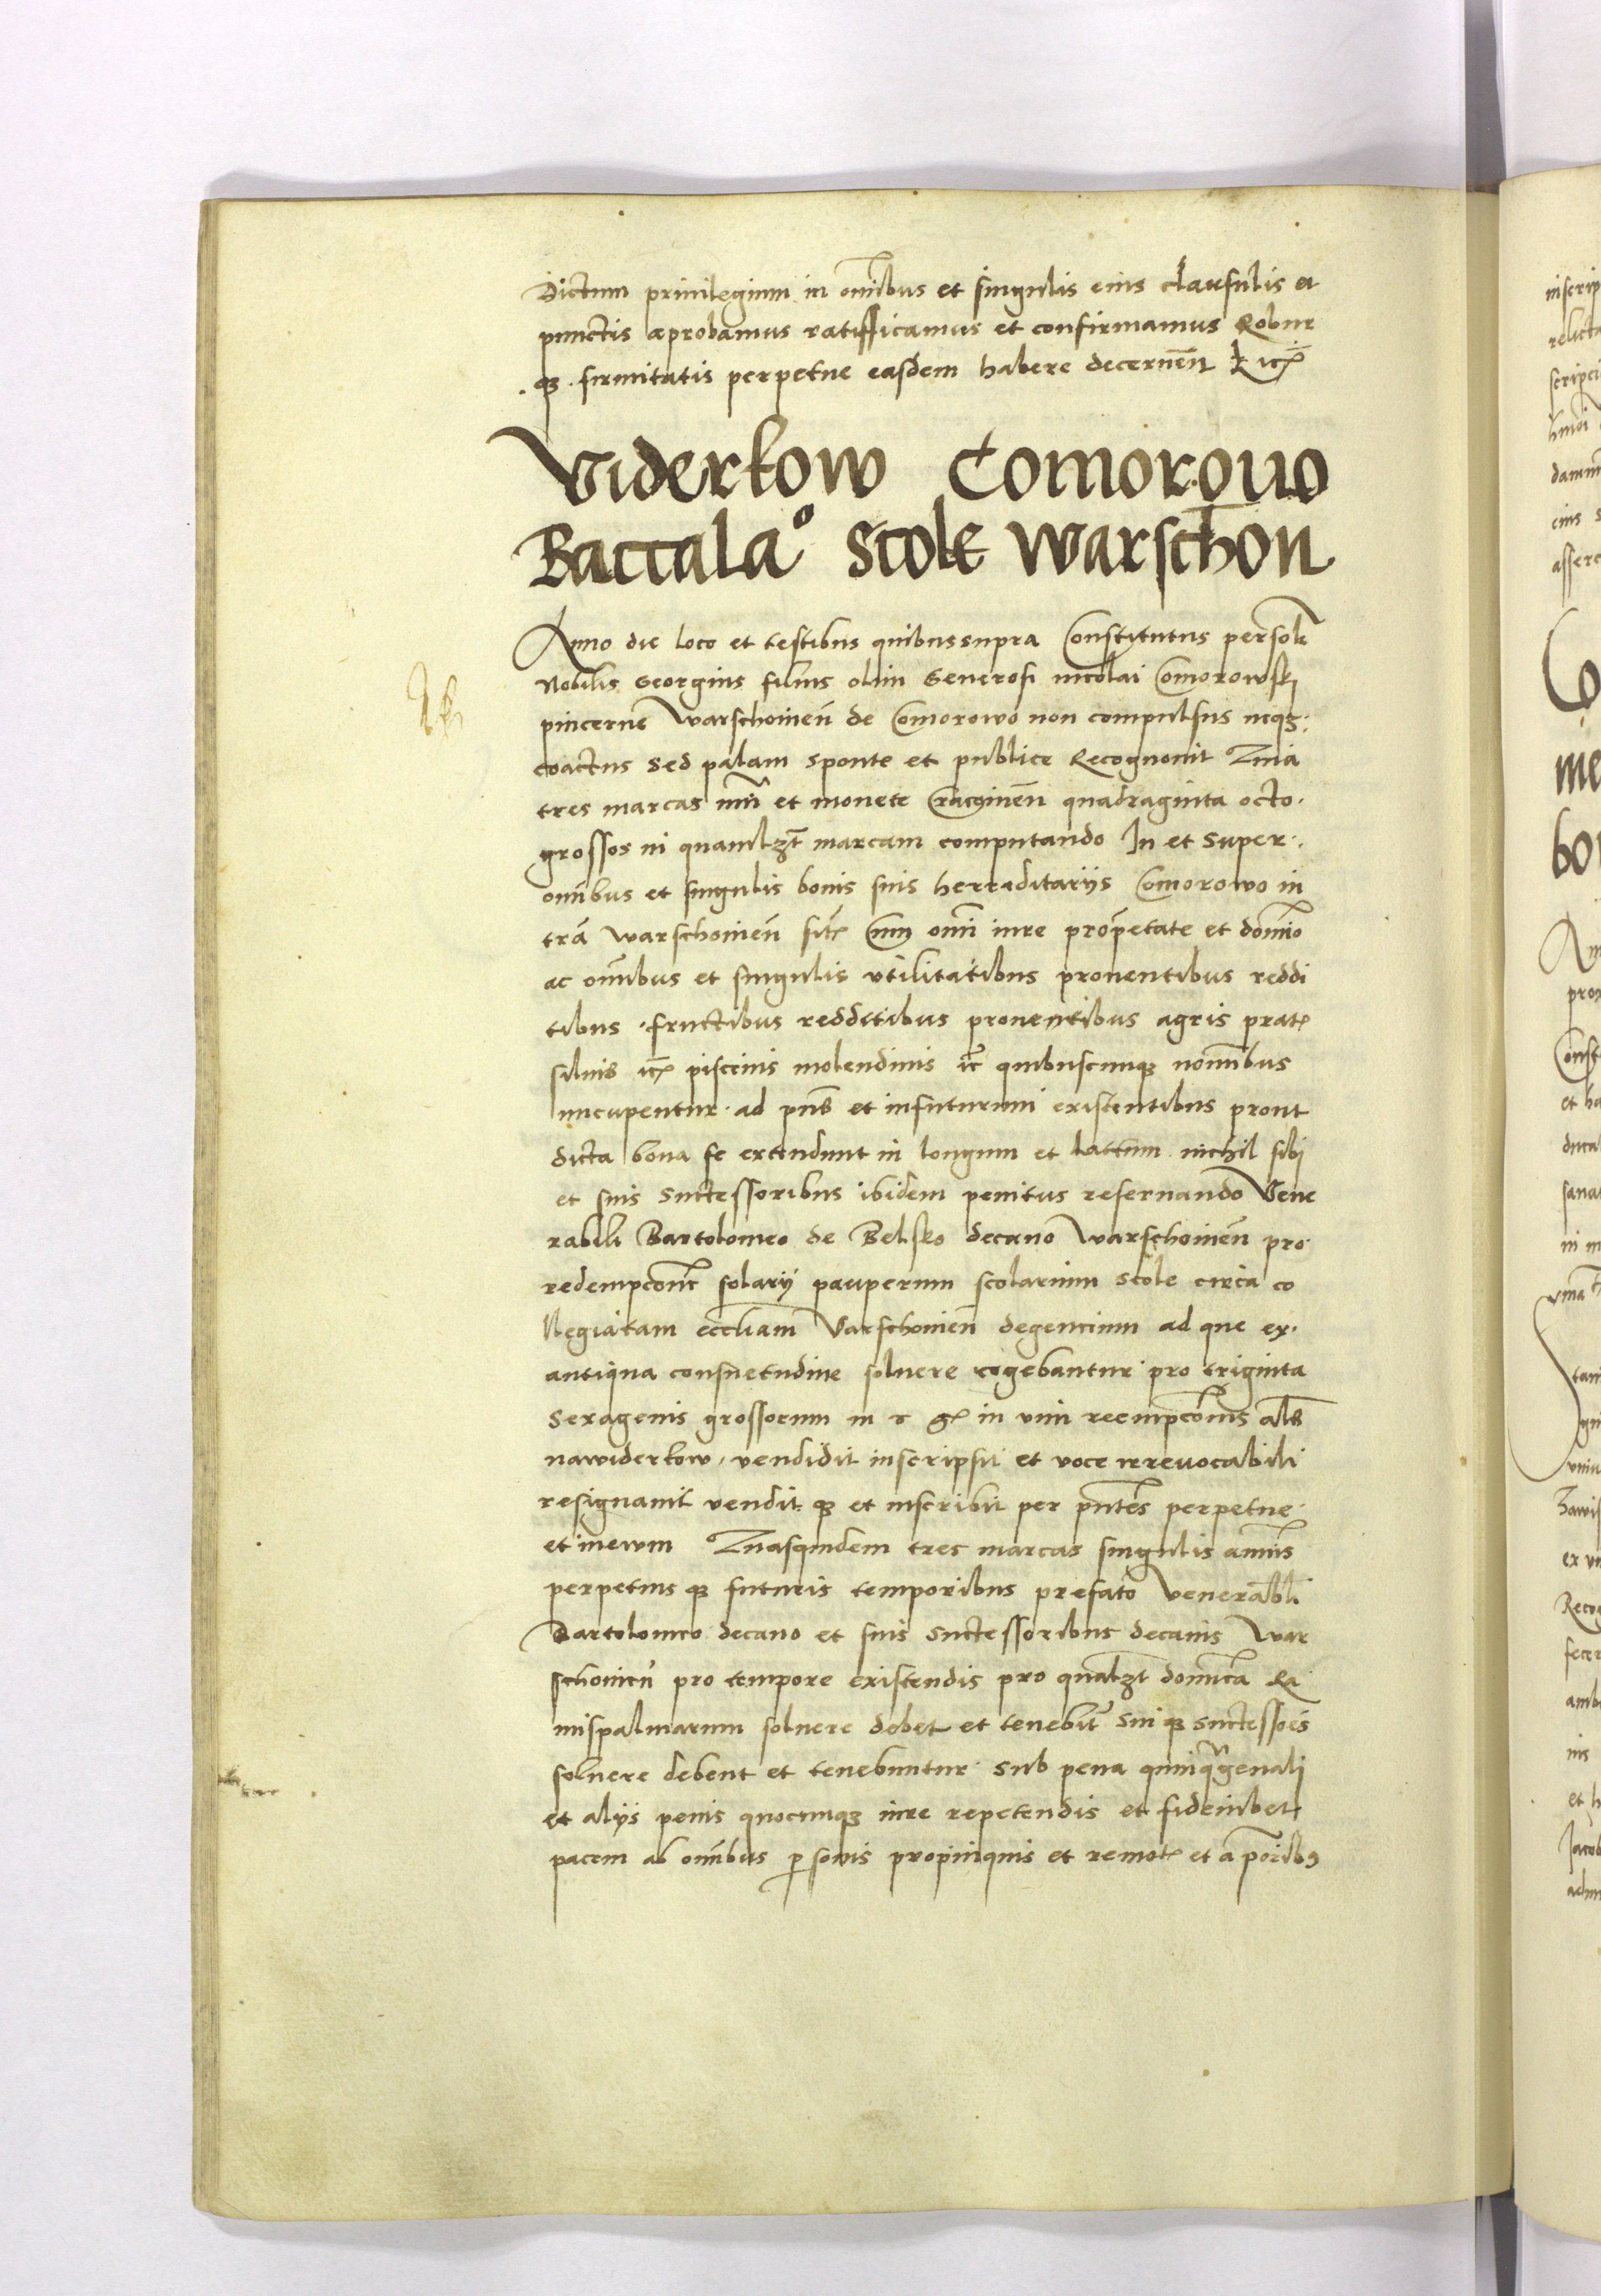 Dictum priuilegium in om̄ibus et singulis eius clausulis et
punctis aprobamus ratifficamus et confirmamus Robur
qꝫ firmitatis perpetue easdem habere decernen̄
Viderkow Comorowo
Baccalaº Scole Warschon
Anno die loco et testibus quibussupra Constitutus persol̄r
Nobilis Georgius filius olim Generosi nicolai Comorowsky
pincerne Warschouien̄ de Comorowo non compulsus neqꝫ
coactus sed palam sponte et publice Recognouit Zuia
tres marcas nūi et monete Cracouien̄ quadraginta octo
grossos in quamlꝫt marcam computando In et super
om̄ibus et singulis bonis suis hereditarijs Comorowo in
tr̄a Warschouien̄ sitꝭ Cum om̄i iure prop̄etate et dom̄io
ac om̄ibus et singulis vtilitatibus prouentibus reddi
tibus fructibus redditibus prouentibus agris pratꝭ
siluis piscinis molendinis quibuscumqꝫ nom̄ibus
nucupentur ad pn̄s et infuturum existentibus prout
dicta bona se extendunt in longum et lattum nichil sibi
et suis successoribus ibidem penitus reseruando Vene
rabili Bartolomeo de Belsko decano Warschouien̄ pro
redempcōne solarij pauperum scolarium scole circa co
llegiatam eccl̄iam Varschouien̄ degencium ad que ex
antiqua consuetudine soluere cogebantur pro triginta
sexagenis grossorum in vim reempcōnis al̄s
nawiderkow vendidit inscripsit et voce irreuocabili
resignauit vendit qꝫ et inscribit per pn̄tes perpetue
et inewm Zuasquidem tres marcas singulis annis
perpetuis qꝫ futuris temporibus prefato Venerabl̄i
Bartolomeo decano et suis successoribus decanis War
schouien̄ pro tempore existendis pro qualꝫt domīca Ra
mispalmarum soluere debet et tenebit̄ sui qꝫ successoēs
soluere debent et tenebuntur sub pena quinqᵃgenali
et alijs penis quocumqꝫ iure repetendis et fideiubet
pacem ab om̄ibus ꝑsonis propinquis et remotꝭ et a